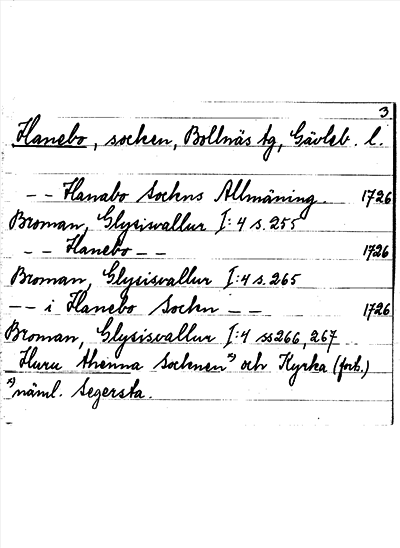 3
Hanebo, socken, Bollnäs tg, Gävleb. l.
-- Hanabo Sockns Allmäning. 1726
Broman, Glysisvallur I:4 s. 255
-- Hanebo -- 1726
Broman, Glysisvallur I:4 s. 265
-- i Hanebo Sockn -- 1726
Broman, Glysisvallur I:4 ss 266, 267
Huru thenna Socknen x) och Kyrka (forts.)
x) näml. Segersta.